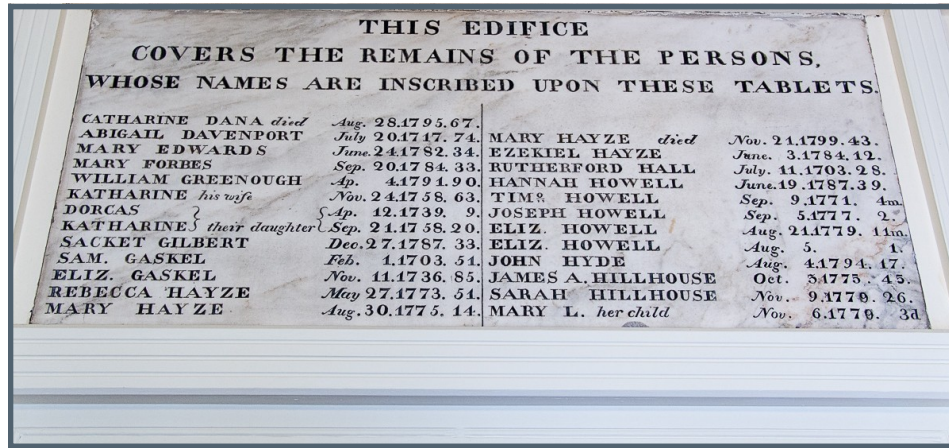 THIS EDIFICE
COVERS THE REMAINS OF THE PERSONS,
WHOSE NAMES ARE INSCRIBED UPON THESE TABLETS.
CATHARINE DANA died Aug. 28.1795.67.
ABIGAIL DAVENPORT July 20.1717. 74.
MARY EDWARDS June.24.1782. 34.
MARY FORBES Sep. 20.1784. 33.
WILLIAM GREENOUGH Ap. 4.1791.90.
KATHARINE his wife Nov. 24.1758. 63.
DORCAS Ap. 12.1739. 9.
KATHARINE their daughter Sep. 21.1758.20.
SACKET GILBERT Dec.27.1787. 33.
SAM. GASKEL Feb. 1.1703. 51.
ELIZ. GASKEL Nov. 11.1736. 85.
REBECCA HAYZE May 27.1773. 51.
MARY HAYZE Aug.30.1775. 14.
MARY HAYZE died Nov. 21.1799.43.
EZEKIEL HAYZE June. 3.1784.12.
RUTHERFORD HALL July. 11.1703. 28.
HANNAH HOWELL June.19.1787.39.
TIMO. HOWELL Sep. 9.1771. 4m.
JOSEPH HOWELL Sep. 5.1777. 2.
ELIZ. HOWELL Aug. 21.1779. 11m.
ELIZ. HOWELL Aug. 5. 1.
JOHN HYDE Aug. 4.1794. 17.
JAMES A. HILLHOUSE Oct. 3.1775. 45.
SARAH HILLHOUSE Nov. 9.1779. 26.
MARY L. her child Nov. 6.1779. 3d